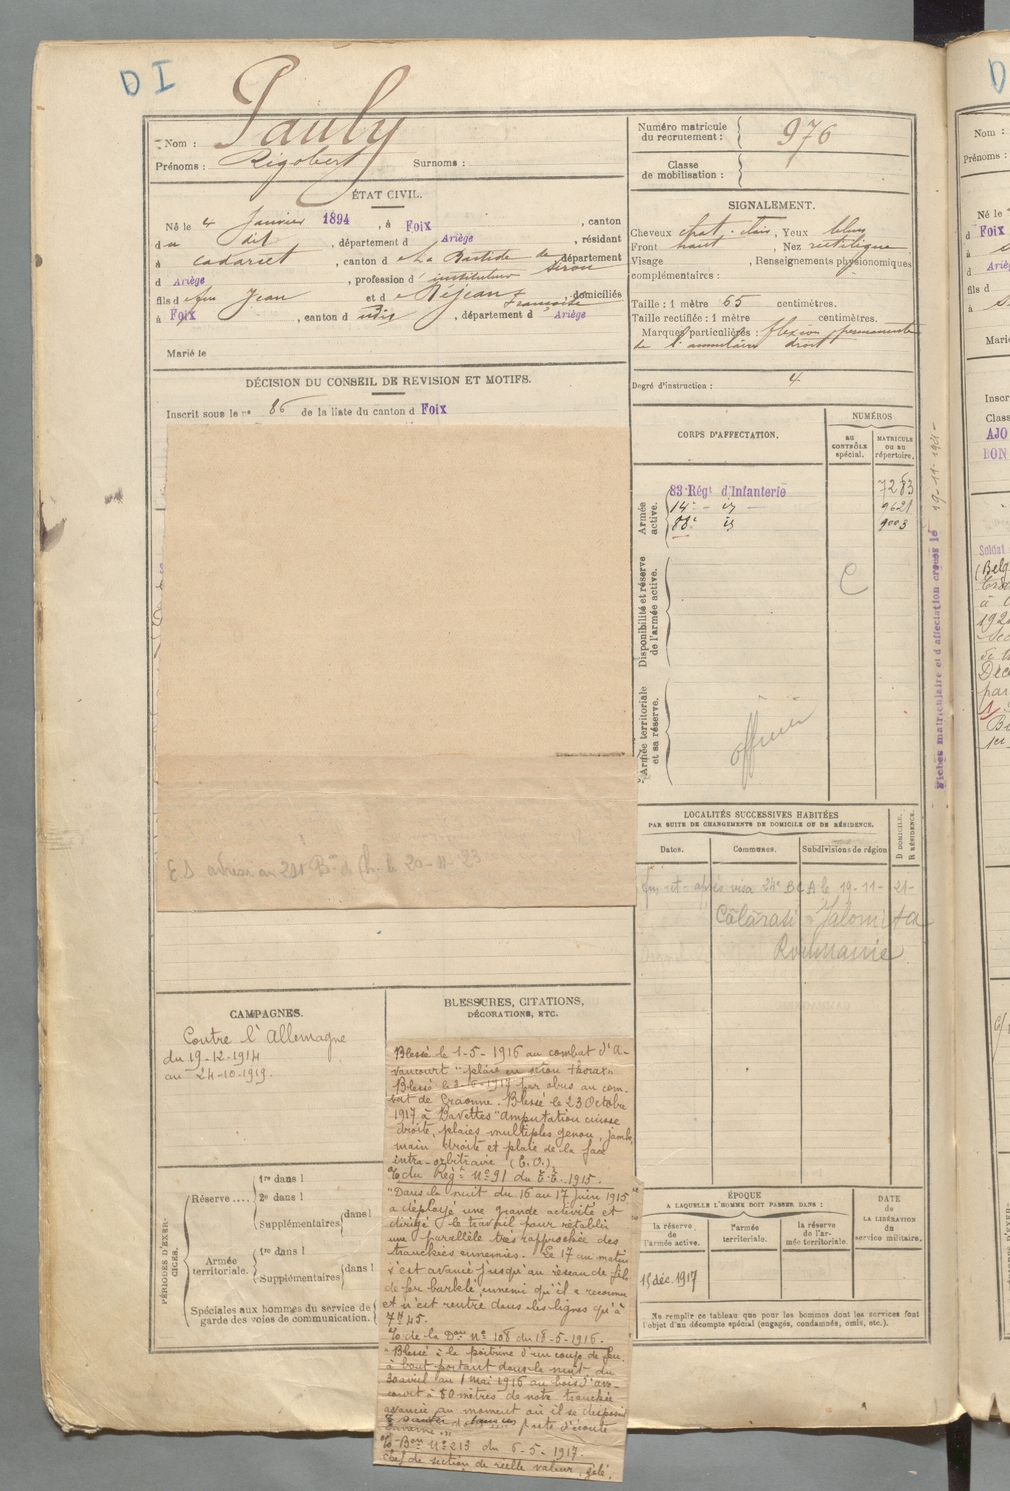 D I
Nom : Pauly
Prénoms : Rigobert Surnoms :
ÉTAT CIVIL.
Né le 4 Janvier 1894, à Foix, canton
d u dit, département d Ariège, résidant
à Cadarcet, canton d e La Bastide de Sérou département
d Ariège, profession d' instituteur
fils d e feu Jean et d e Réjean Françoise, domiciliés
à Foix, canton d udit, département d Ariège
Marié le
DÉCISION DU CONSEIL DE REVISION ET MOTIFS.
Inscrit sous le n° 86 de la liste du canton d Foix
E S adressé au 21e Bon de Ch. le 20-11-23
CAMPAGNES.
Contre l'Allemagne
du 19-12-1914
au 24-10-1919.
BLESSURES, CITATIONS,
DÉCORATIONS, ETC.
Blessé le 1-5-1916 au combat d'A-
vaucourt "plaie en séton thorax"
Blessé le 2-6-1917 par obus au com-
bat de Craonne. Blessé le 23 Octobre
1917 à Bavettes "amputation cuisse
droite, plaies multiples genou, jambe
main droite et plaie de la face
intra-orbitraire (E.O.)
% du Régt N° 91 du 1915.
"Dans la nuit du 16 au 17 juin 1915
a déployé une grande activité et
dirigé le travail pour rétablir
une parallèle très rapprochée des
tranchées ennemies. Le 17 au matin
s'est avancé jusqu'au réseau de fils
de fer barbelé ennemi qu'il a reconnu
et n'est rentré dans les lignes qu'à
7H45.
% de la Don N° 108 du 18-5-1916.
"Blessé à la poitrine d'un coup de feu
à bout portant dans la nuit du
30 avril au 1 Mai 1916 au bois d'avo-
court à 50 mètres de notre tranchée
avancée au moment où il se disposait
poste d'écoute
ennemi."
% Bon N° 213 du 6-5-1917.
Chef de section de réelle valeur, zélé,
PÉRIODES D'EXER-
CICES.
Réserve ....
1re dans l
2e dans l
Supplémentaires dans l
Armée
territoriale.
1re dans l
Supplémentaires dans l
Spéciales aux hommes du service de
garde des voies de communication.
Numéro matricule
du recrutement : 976
Classe
de mobilisation :
SIGNALEMENT.
Cheveux chat. clair, Yeux bleus
Front haut, Nez rectiligne
Visage , Renseignements physionomiques
complémentaires :
Taille : 1 mètre 65 centimètres.
Taille rectifiée : 1 mètre centimètres.
Marques particulières : flexion permanente
de l'annulaire droit
Degré d'instruction : 4
CORPS D'AFFECTATION.
NUMÉROS
AU
CONTRÔLE
spécial.
MATRICULE
OU AU
répertoire.
Armée
active.
83 Régt d'Infanterie 7283
14e - id - 9621
88e id 9003
Disponibilité et réserve
de l'armée active.
C
Armée territoriale
et sa réserve.
officier
LOCALITÉS SUCCESSIVES HABITÉES
PAR SUITE DE CHANGEMENTS DE DOMICILE OU DE RÉSIDENCE.
D DOMICILE.
R RÉSIDENCE.
Dates. Communes. Subdivisions de région
après visa 24e BCA le 19-11-21-
Călărasi Jalomita
Roumanie
ÉPOQUE
A LAQUELLE L'HOMME DOIT PASSER DANS :
DATE
de
LA LIBÉRATION
du
service militaire.
la réserve
de
l'armée active.
l'armée
territoriale.
la réserve
de l'ar-
mée territoriale.
15 déc. 1917
Ne remplir ce tableau que pour les hommes dont les services font
l'objet d'un décompte spécial (engagés, condamnés, omis, etc.).
Fiches matriculaire et d'affectation créées le 19-11-1921-
D
Nom :
Prénoms :
Né le
d Foix
à
d Ariège
fils d
à
Marié
Inscr
Class
AJO
BON
Soldat
(Belg
à
192
Déc
par